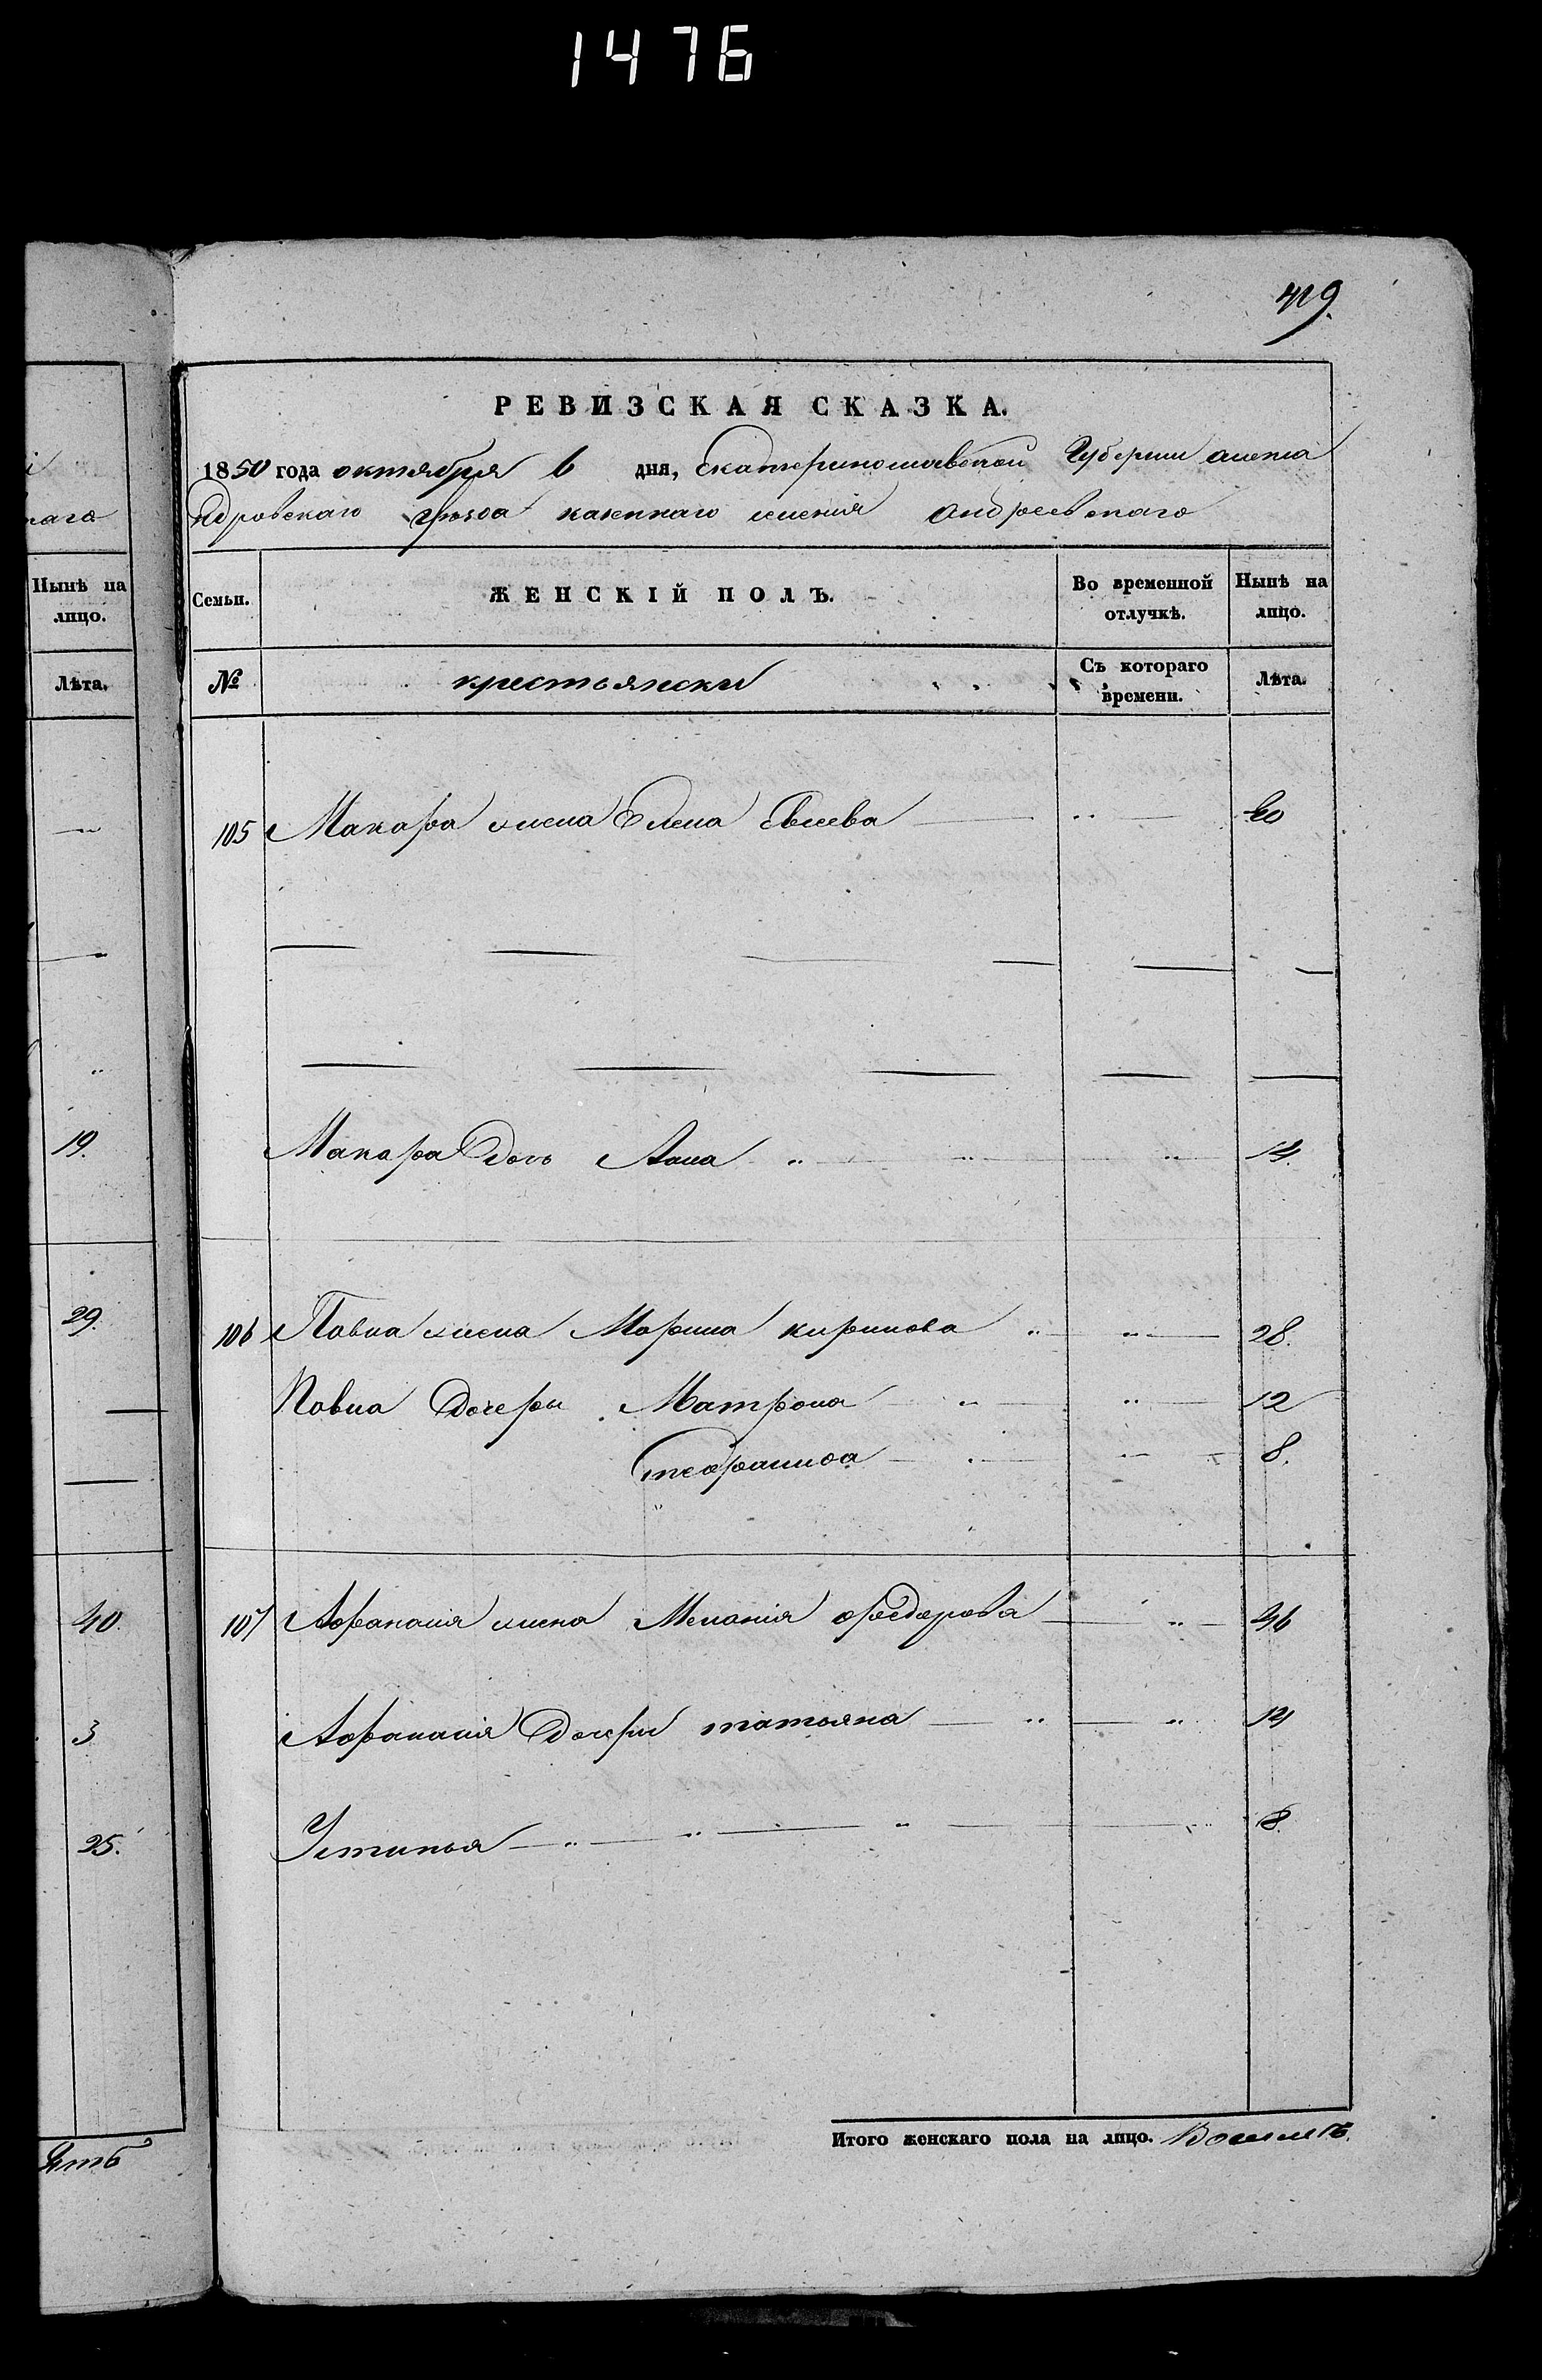 1476
419.
РЕВИЗСКАЯ СКАЗКА.
1850 года октября 6 дня, Екатеринославской Губернии алекса
ндровскаго уѣзда казеннаго селенія андреевскаго
наго
Нынѣ на лицо.
Лѣта.
Семьи.
ЖЕНСКІЙ ПОЛЪ.
Во временной отлучкѣ.
Нынѣ на лицо.
№
крестьянски
Съ котораго времени.
Лѣта.
105 Макара жена Елена Евсеева 60
19.
Макара дочь Анна 14.
29.
106 Павла жена Марина кирилова 28.
Павла дочери Матрона 12
Стефанида 8.
40.
107 Афанасия жена Меланія федорова 46
3
Афанасія дочери татьяна 14
25.
Устинья 8.
Итого женскаго пола на лицо. Восимъ.
ять